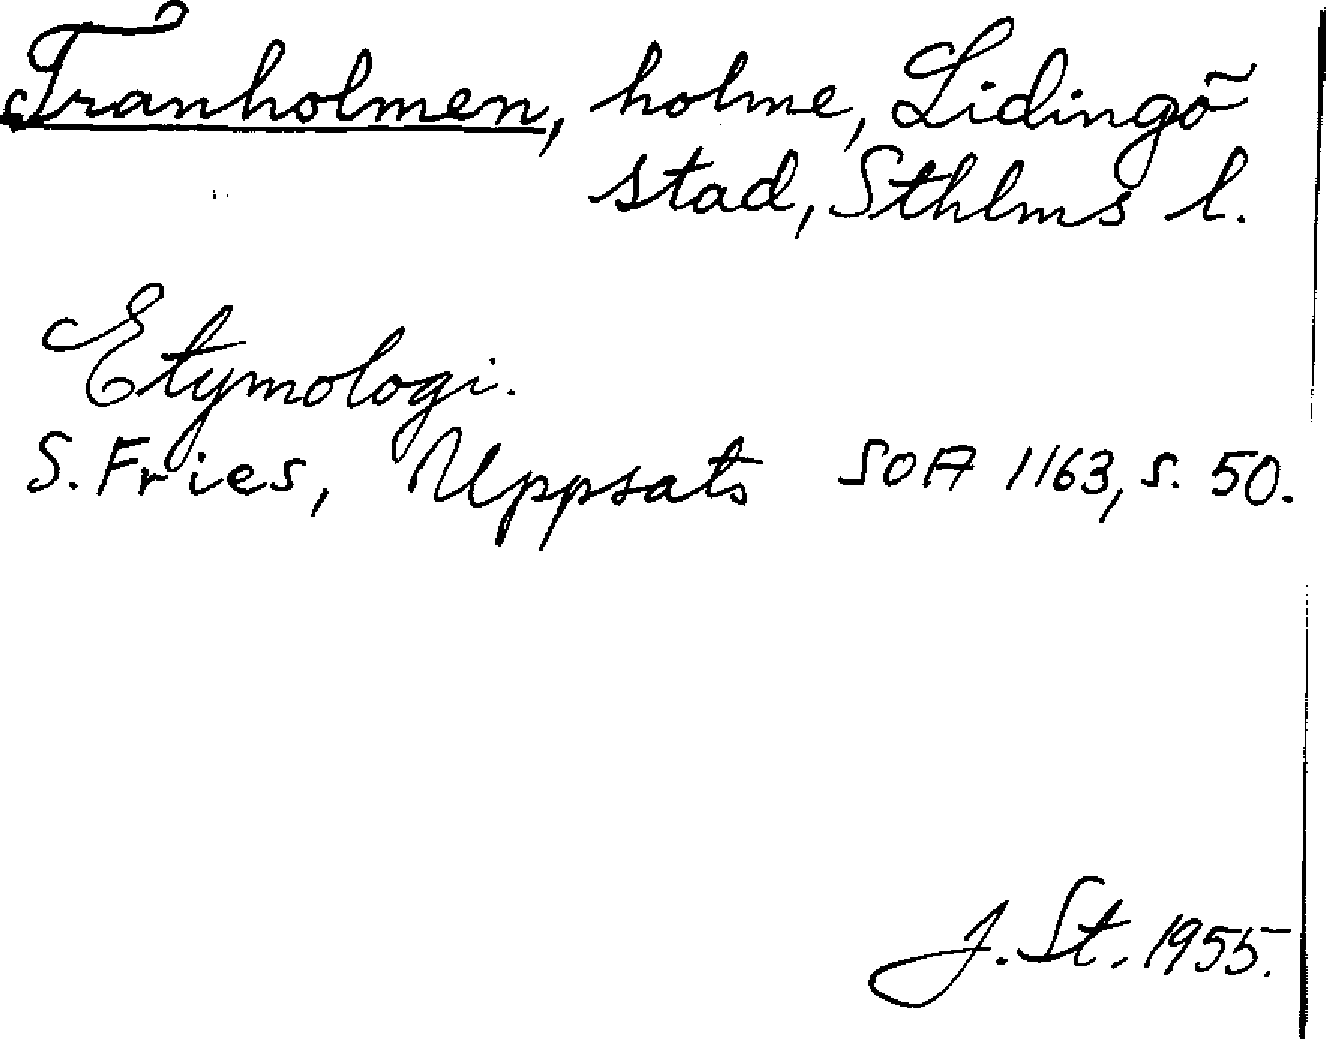 Tranholmen, holme, Lidingö
stad, Sthlms l.
Etymologi.
S. Fries, Uppsats SOA 1163, s. 50.
J. St. 1955.